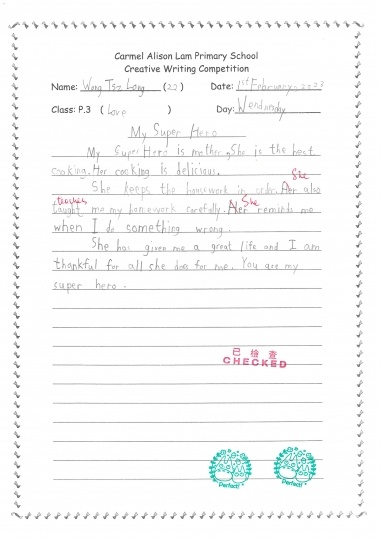 Carmel Alison Lam Primary School
Creative Writing Competition
Name: Wong Tsz Long (22) Date: 1st February, 2023
Class: P.3 (Love) Day: Wendnesday
My Super Hero
My Super Hero is mother. She is the best
cooking. Her cooking is delicious.
She
She keeps the housework in order. Her also
teaches She
taught me my homework carefully. Her reminds me
when I do something wrong.
She has given me a great life and I am
thankful for all she does for me. You are my
super hero.
已檢查
CHECKED
Perfect! Perfect!